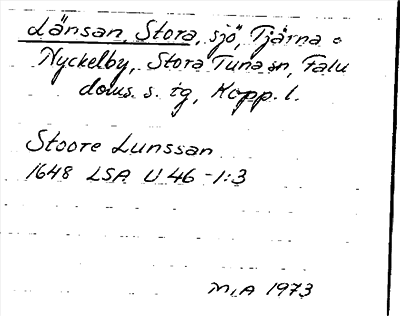 Länsan, Stora, sjö, Tjärna o
Nyckelby, Stora Tuna sn, Falu
doms. s. tg, Kopp. l.
Stoore Lunssan
1648 LSA U 46 -1:3
M.A 1973